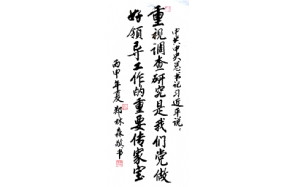 中共中央总书记习近平说：
重视调查研究是我们党做
好领导工作的重要传家宝
丙申年夏郑林森敬书